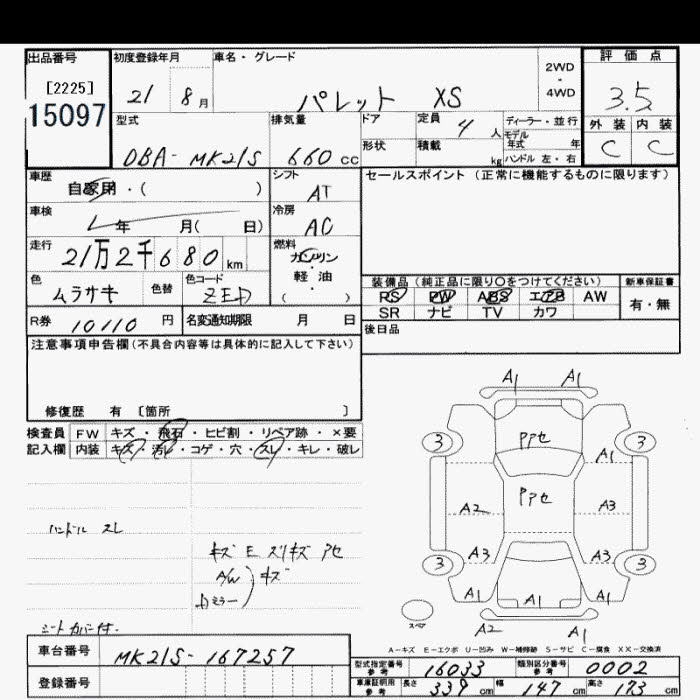 出品番号 初度登録年月 車名・グレード 2WD・4WD 評価点
[2225] 15097 21 8月 パレット XS 3.5
型式 排気量 ドア 定員 4人 ディーラー・並行 外装 内装
DBA-MK21S 660cc 形状 積載 kg モデル年式 年 C C
ハンドル 左・右
車歴 自家用・( ) シフト AT セールスポイント(正常に機能するものに限ります)
車検 年 月( 日) 冷房 AC
走行 21万2千680km 燃料 ガソリン・軽油 ( )
色 ムラサキ 色替 色コード ZED 装備品(純正品に限り○をつけてください) 新車保証書
RS PW ABS エアB AW 有・無
R券 10110円 名変通知期限 月 日 SR ナビ TV カワ
注意事項申告欄(不具合内容等は具体的に記入して下さい) 後日品
修復歴 有 [箇所 ]
検査員記入欄 FW キズ・飛石・ヒビ割・リペア跡・×要
内装 キズ・汚レ・コゲ・穴・スレ・キレ・破レ
A1 A1
3 3
A1
A2 A3
A3 A3
3 3
A1 A1 A1
A2 A1
ハンドル スレ
キズ E スリキズ アセ
A/W キズ
ミラー
シートカバー付
スペア
A-キズ E-エクボ U-凹み W-補修跡 S-サビ C-腐食 XX-交換済
車台番号 MK21S-167257 型式指定番号 参考 16033 類別区分番号 参考 0002
登録番号 車庫証明用 参考 長さ 339cm 幅 147cm 高さ 173cm